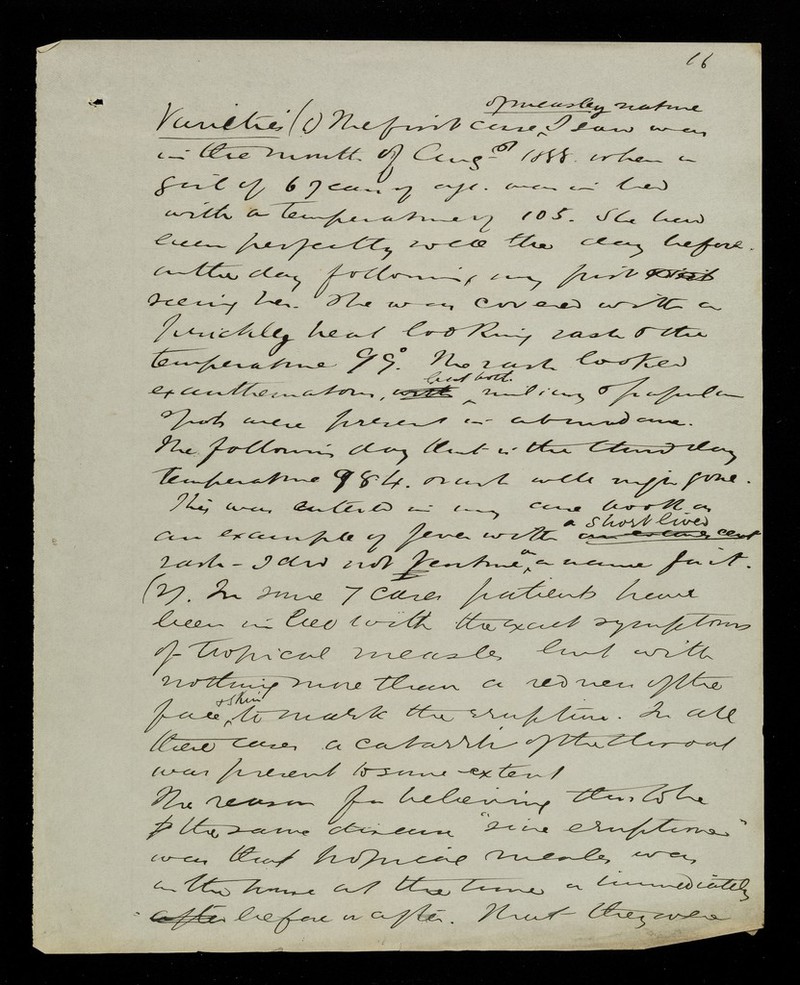 16
of measley nature
Varieties (1) The first case, I saw was
in the month of Aug of 1888. when a
girl of 6 years of age. was in bed
with a temperature of 105. She had
been perfectly well the day before.
on the day following, my first visit
seeing her. She was covered with a
prickly heat looking rash & the
temperature 99°. The rash looked
but both
exanthematous, with miliary & papular
spots were present in abundance.
The following day that is the third day
temperature 984. rash well nigh gone.
This was entered in my case book as
a short lived
an example of fever with an evanescent
rash - I did not venture on a name for it.
(2). In some 7 cases patients have
been in bed with the exact symptoms
of tropical measles but with
nothing more than a redness of the
& skin
face, to mark the eruption. In all
these cases a catarrh of the throat
was present to some extent
The reason for believing this to be
the same disease "sine eruptione"
was that tropical measles was
in the house at the time or immediately
after before or after. That they were